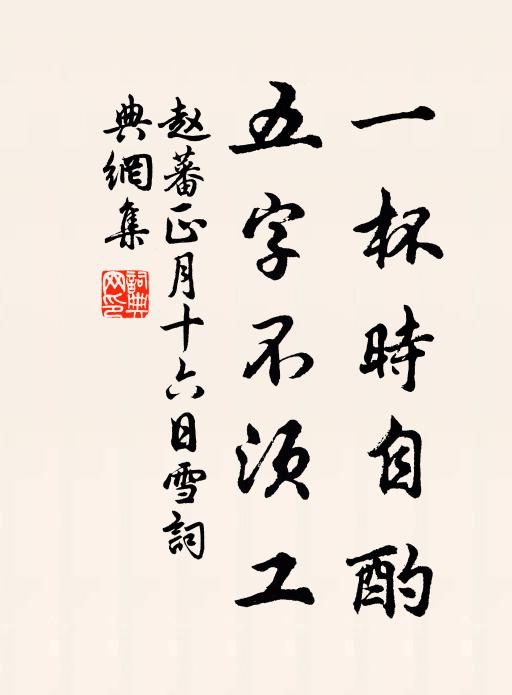 一杯時自酌
五字不須工
赵蕃正月十六日雪詞
典網集
詞典网印